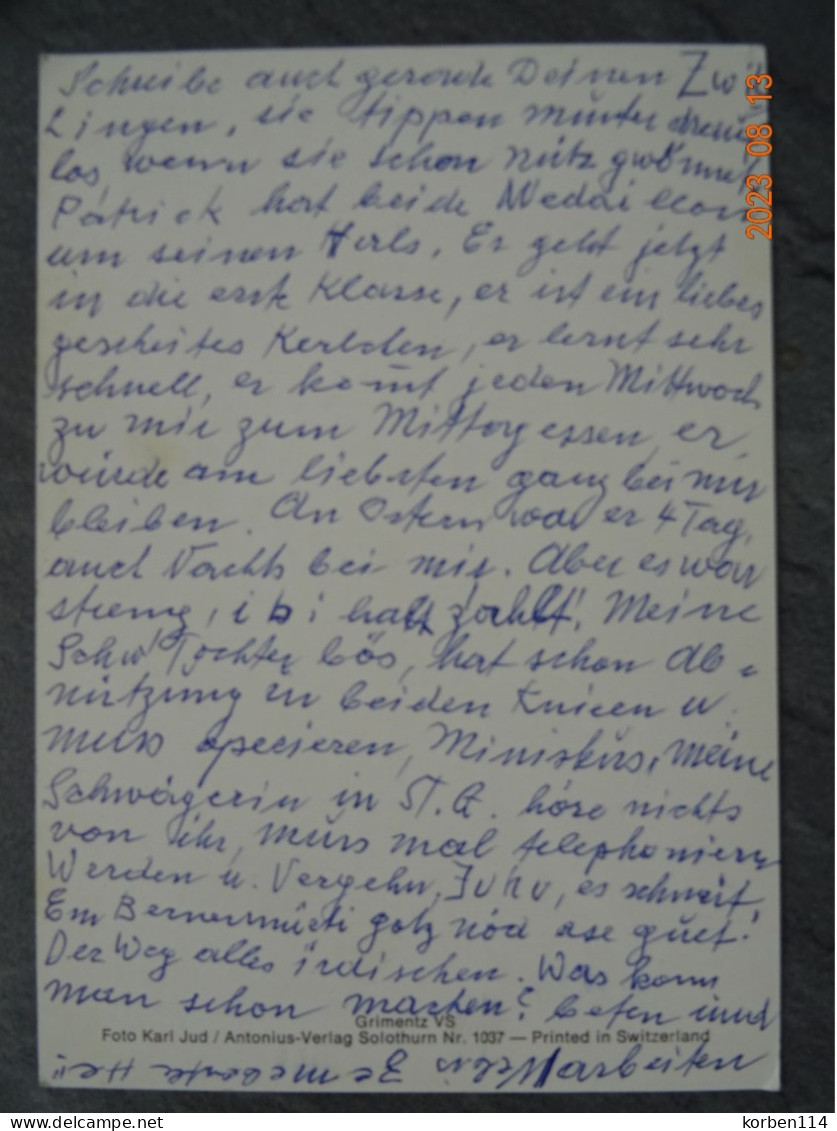 Schreibe auch gerade Deinen Zwil
lingen, sie tippen munter drauf
los, wenn sie schon nütz gwönnet.
Patrick hat beide Medaillon
um seinen Hals. Er geht jetzt
in die erste Klasse, er ist ein liebes
gescheites Kerlchen, er lernt sehr
schnell, er komt jeden Mittwoch
zu mir zum Mittagessen, er
würde am liebsten ganz bei mir
bleiben. An Ostern war er 4 Tag,
auch Nachts bei mir. Aber es war
streng, i bi halt
Meine
Schw Tochter bös, hat schon Ab-
nützung in beiden Knieen u.
muss operieren, Miniskus, meine
Schwägerin in ST. G. höre nichts
von ihr, muss mal telephoniern
Werden u. Vergehn, Juhu, es schneit
Em Bernermüeti gohz nöd ase guet!
Der Weg alles irdischen. Was kann
man schon machen? beten und
Grimentz VS
Foto Karl Jud / Antonius-Verlag Solothurn Nr. 1037 — Printed in Switzerland
arbeiten
2023 08 13
delcampe.net
korben114